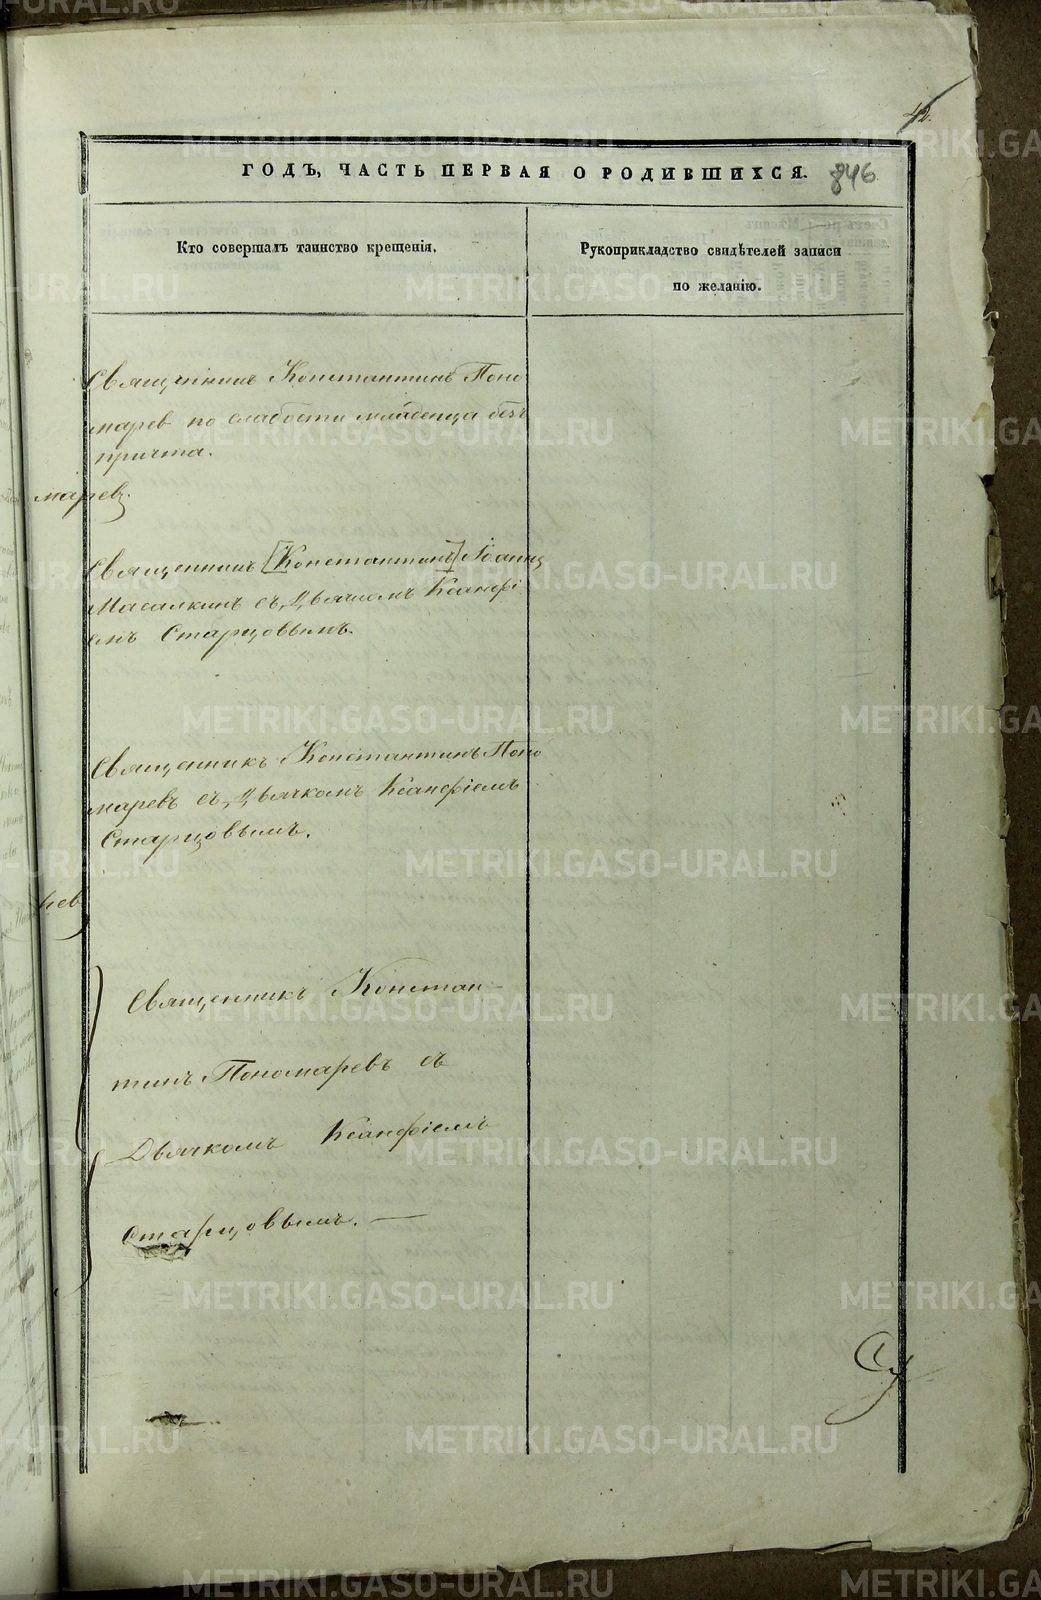 42.
ГОДЪ, ЧАСТЬ ПЕРВАЯ О РОДИВШИХСЯ.
846
Кто совершалъ таинство крещенія.
Рукоприкладство свидѣтелей записи
по желанію.
Священникъ Константинъ Поно
марев по слабости младенца безъ
причта.
марев.
Священникъ [Константинъ] Іоаннъ
Масалкинъ съ Дьячкомъ Ксанфі
емъ Старцовымъ.
Священникъ Константинъ Поно
маревъ съ Дьячкомъ Ксанфіемъ
Старцовымъ.
Священникъ Констан-
тинъ Пономаревъ съ
Дьячкомъ Ксанфіемъ
Старцовымъ. —
METRIKI.GASO-URAL.RU